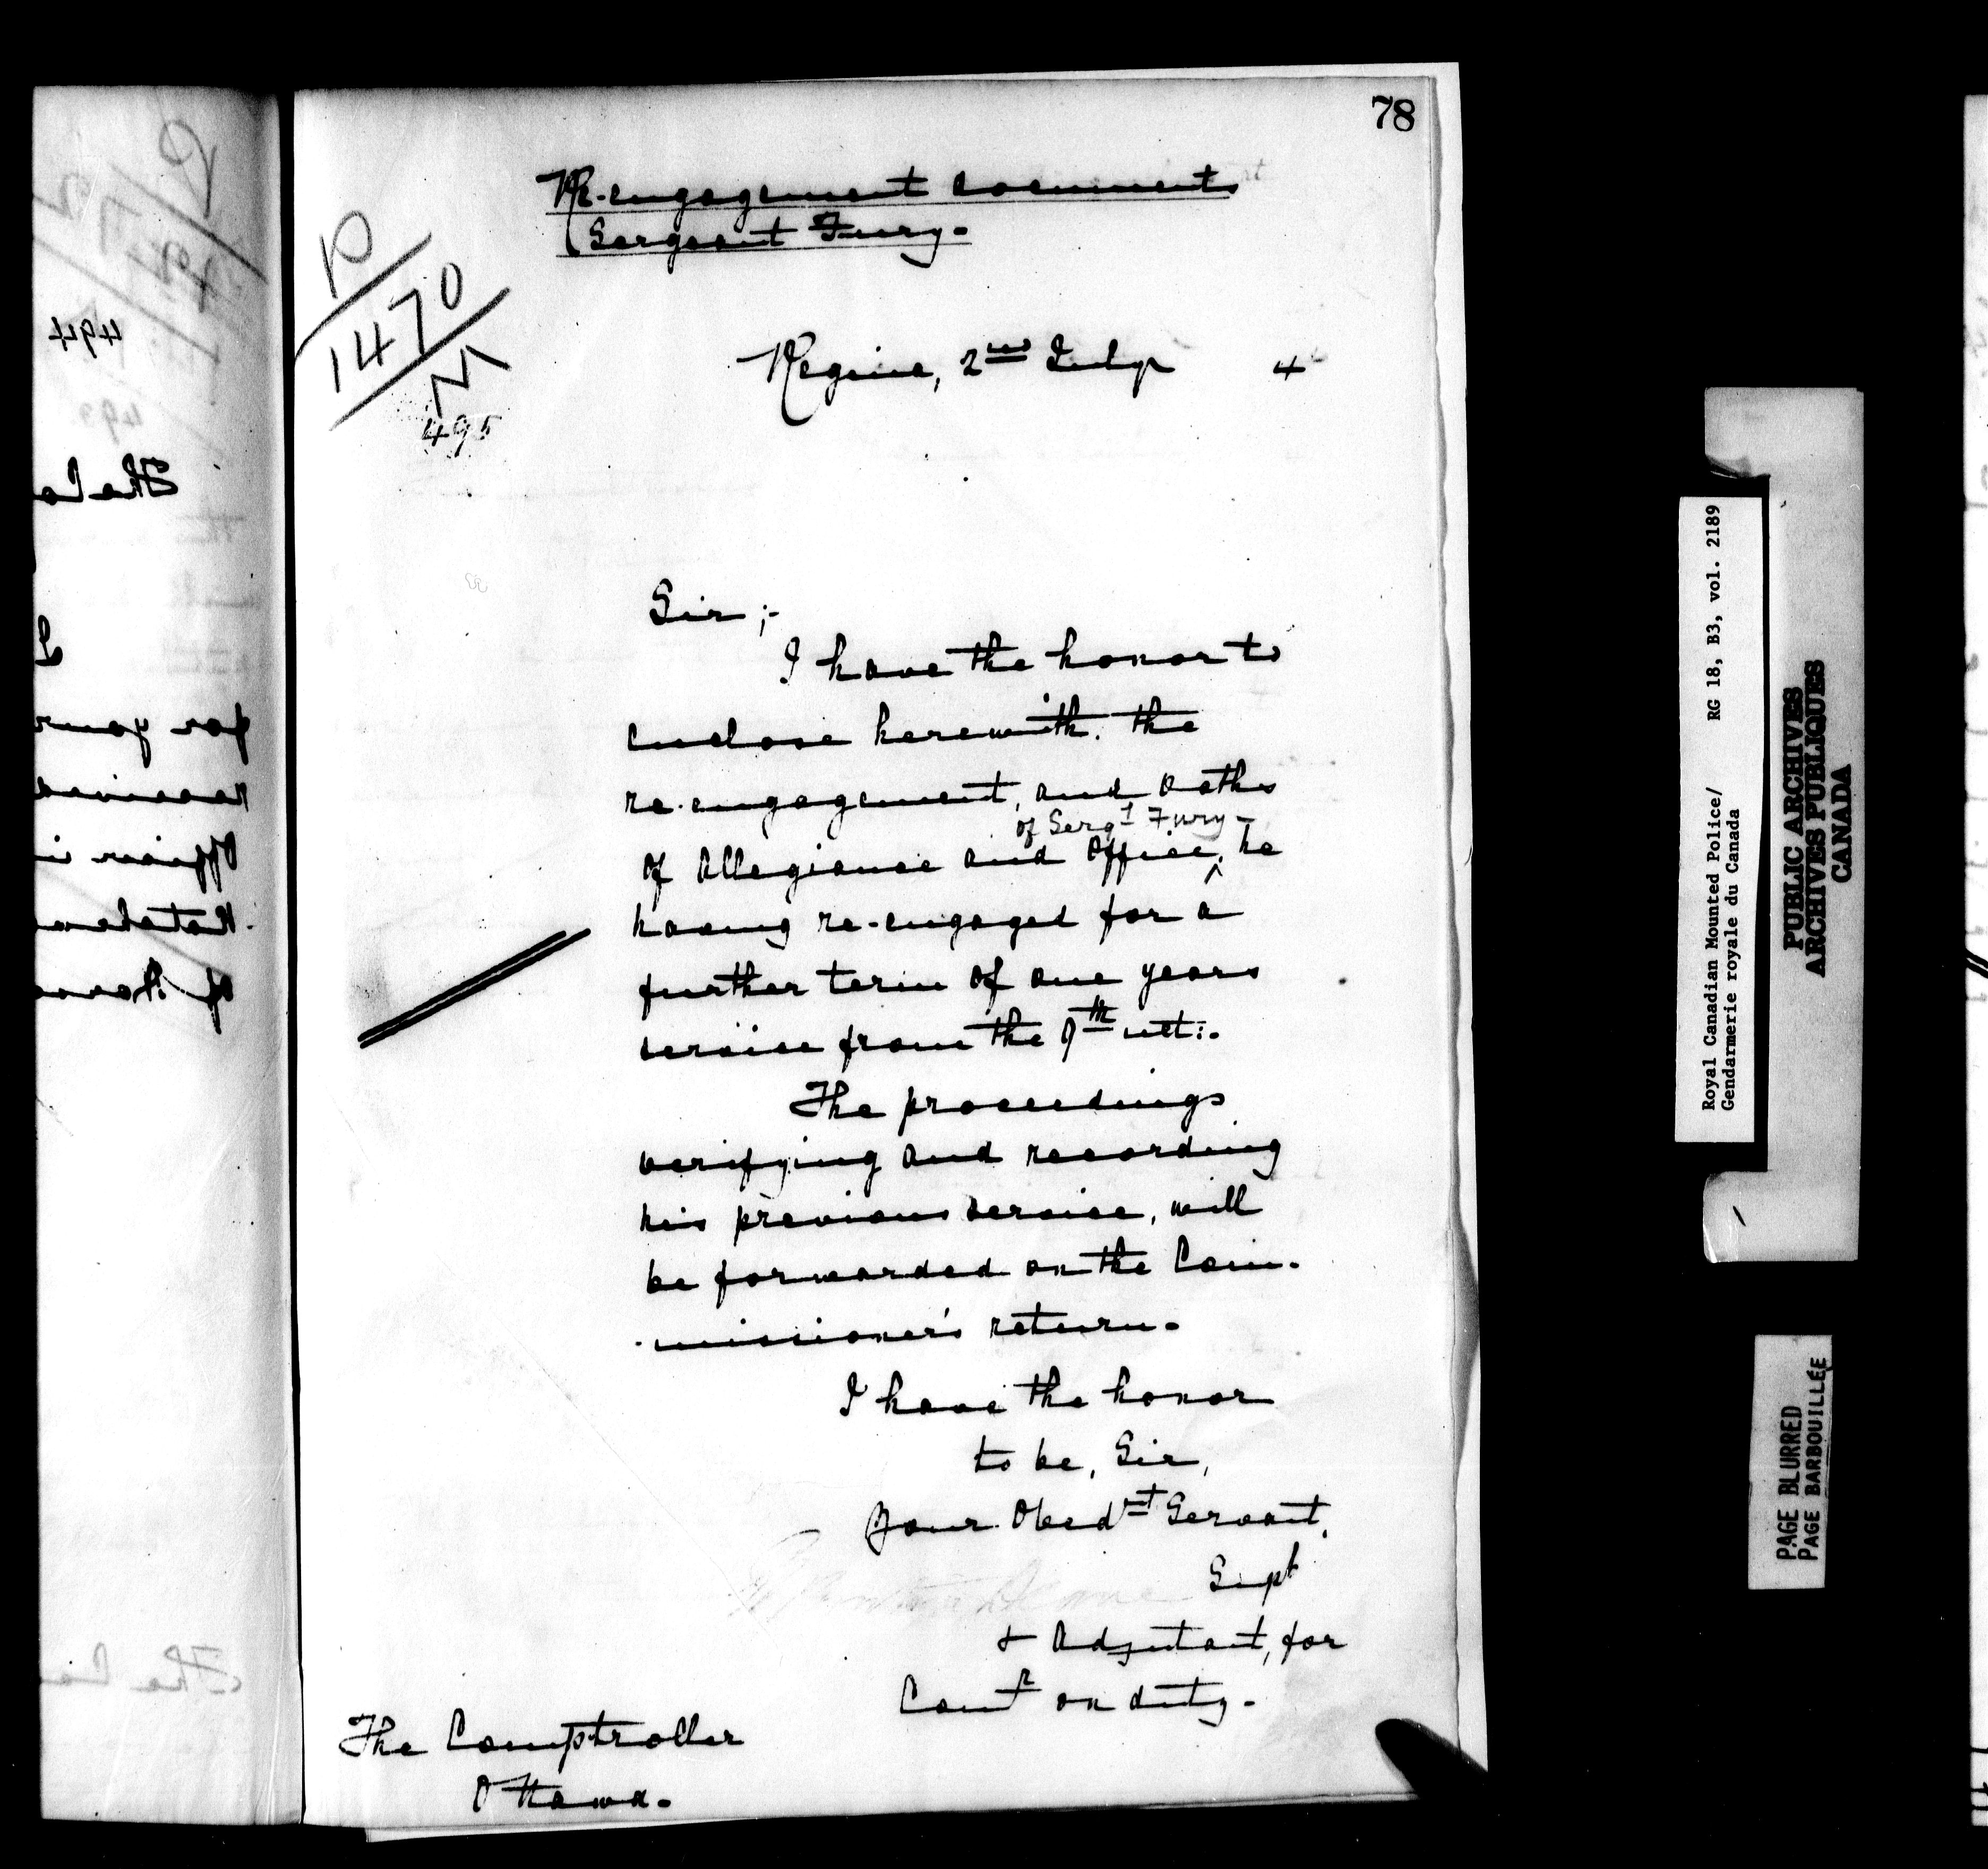 78
Re-engagement documents
Sergeant Fury.-
D
1470
M
495
Regina, 2nd July 4
Sir ;-
I have the honor to
enclose herewith, the
re-engagement, and oaths
of Sergt Fury -
of Allegiance and Office, he
having re-engaged for a
further term of one years
service from the 9th ult:.
The proceedings
verifying and recording
his previous service, will
be forwarded on the Com-
-missioner's return.
I have the honor
to be, Sir,
Your Obedt Servant,
Supt
& Adjutant, for
Comr on duty.
The Comptroller
Ottawa.
494
493
The Co
for your
received
Officer i
Royal Canadian Mounted Police/ RG 18, B3, vol. 2189
Gendarmerie royale du Canada
PUBLIC ARCHIVES
ARCHIVES PUBLIQUES
CANADA
PAGE BLURRED
PAGE BARBOUILLÉE